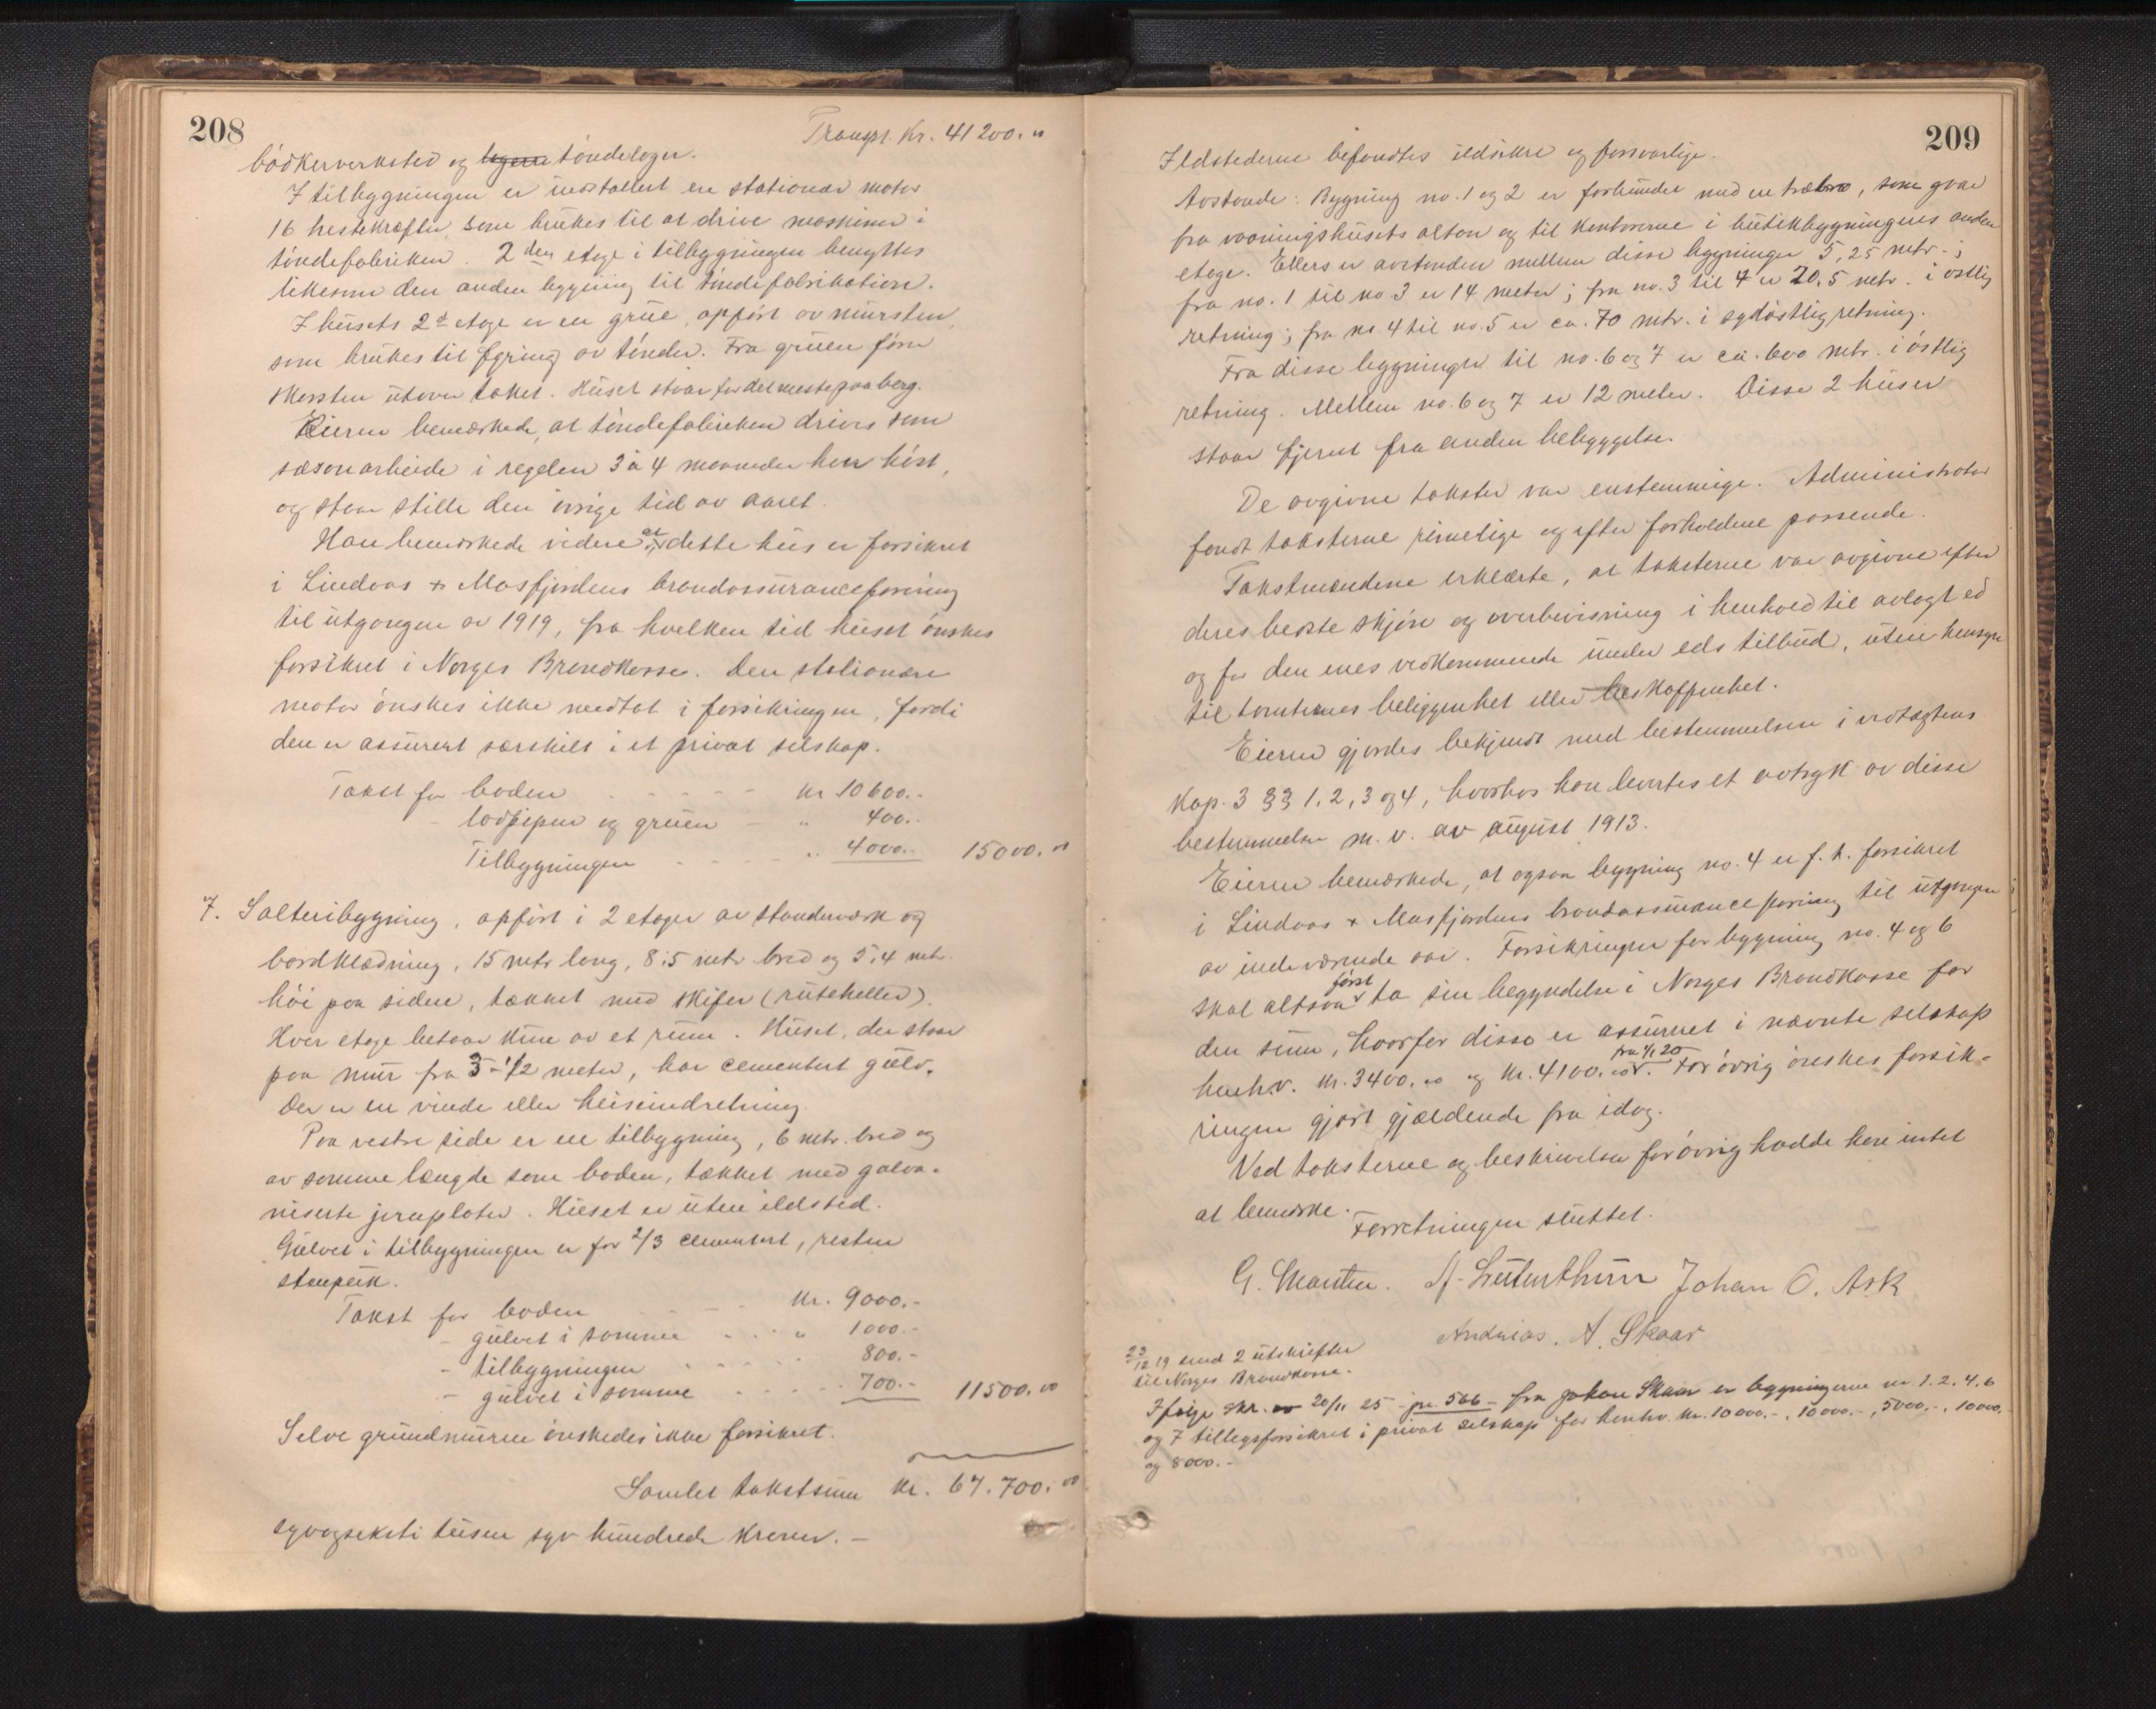 208
Transpt. Kr. 41200.00
bødkerverksted og lagere tøndelager.
I tilbygningen er indstallert en stationær motor
16 hestekræfter, som brukes til at drive maskiner i
tøndefabriken. 2den etage i tilbygningen benyttes
likesom den anden bygning til tøndefabrikation.
I husets 2d etage er en grue, opført av mursten,
som brukes til fyring av tønder. Fra gruen fører
skorsten utover taket. Huset staar for det meste paa berg.
Eieren bemerkede, at tøndefabriken drives som
sæsonarbeide i regelen 3 à 4 maaneder hver høst,
og staar stille den øvrige tid av aaret.
Han bemerkede videre at dette hus er forsikret
i Lindaas & Masfjordens brandassuranceforening
til utgangen av 1919, fra hvilken tid huset ønskes
forsikret i Norges Brandkasse. Den stationære
motor ønskes ikke medtat i forsikringen, fordi
den er assurert særskilt i et privat selskap.
Takst for boden - - - - kr 10600.-
- lodpipen og gruen - " 400.-
Tilbygningen - - - - " 4000.- 15000.00
7. Salteribygning, opført i 2 etager av stenderværk og
bordklædning, 15 mtr lang, 8.5 mtr bred og 5.4 mtr.
høi paa siden, tækket med skifer (ruteheller).
Hver etage bestaar kun av et rum. Huset, der staar
paa mur fra 3 - 1/2 meter, har cementert gulv.
Der er en vinde eller heiseindretning.
Paa vestre side er en tilbygning, 6 mtr. bred og
av samme længde som boden, tækket med galva-
niserte jernplater. Huset er uten ildsted.
Gulvet i tilbygningen er for 2/3 cementert, resten
stenpuk.
Takst for boden - - - kr. 9000.-
- gulvet i samme - - - " 1000.-
- tilbygningen - - - - 800.-
- gulvet i samme - - - - 700.- 11500.00
Selve grundmuren ønskedes ikke forsikret.
Samlet takstsum kr. 67.700.00
syvogseksti tusen syv hundrede kroner.-
209
Ildstederne befandtes ildsikre og forsvarlige.
Avstande: Bygning no. 1 og 2 er forbundet med en træbro, som gaar
fra vaaningshusets altan og til kontorerne i butikbygningens anden
etage. Ellers er avstanden mellem disse bygninger 5,25 mtr.;
fra no. 1 til no 3 er 14 meter; fra no. 3 til 4 er 20,5 mtr. i østlig
retning; fra no. 4 til no. 5 er ca. 70 mtr. i sydøstlig retning.
Fra disse bygninger til no. 6 og 7 er ca. 600 mtr. i østlig
retning. Mellem no. 6 og 7 er 12 meter. Disse 2 huser
staar fjernt fra anden bebyggelse.
De avgivne takster var enstemmige. Administrator
fandt taksterne rimelige og efter forholdene passende.
Takstmændene erklærte, at taksterne var avgivne efter
deres bedste skjøn og overbevisning i henhold til avlagt ed
og for den enes vedkommende under eds tilbud, uten hensyn
til tomternes beliggenhet eller beskaffenhet.
Eieren gjordes bekjendt med bestemmelsen i vedtægtens
Kap. 3 §§ 1, 2, 3 og 4, hvorhos han levertes et avtryk av disse
bestemmelser m. v. av august 1913.
Eieren bemerkede, at ogsaa bygning no. 4 er f. t. forsikret
i Lindaas & Masfjordens brandassuranceforening til utgangen
av indeværende aar. Forsikringen for bygning no. 4 og 6
skal altsaa først ta sin begyndelse i Norges Brandkasse for
den sum, hvorfor disse er assurert i nævnte selskap
henhv. kr. 3400.00 og kr. 4100.00 fra 1/1 20. Forøvrig ønskes forsik-
ringen gjort gjældende fra idag.
Ved taksterne og beskrivelsen forøvrig hadde han intet
at bemerke.
Forretningen sluttet.
G. A. Johan O. Ask
Andreas. A. Skaar
23/12 19 send 2 utskrifter
til Norges Brandkasse.
Ifølge skr. av 20/11 25 - jnr. 566 - fra Johan Skaar er bygningerne nr. 1. 2. 4. 6
og 7 tillegsforsikret i privat selskap for henhv. kr. 10000.-, 10000.-, 5000.-, 10000.
og 8000.-